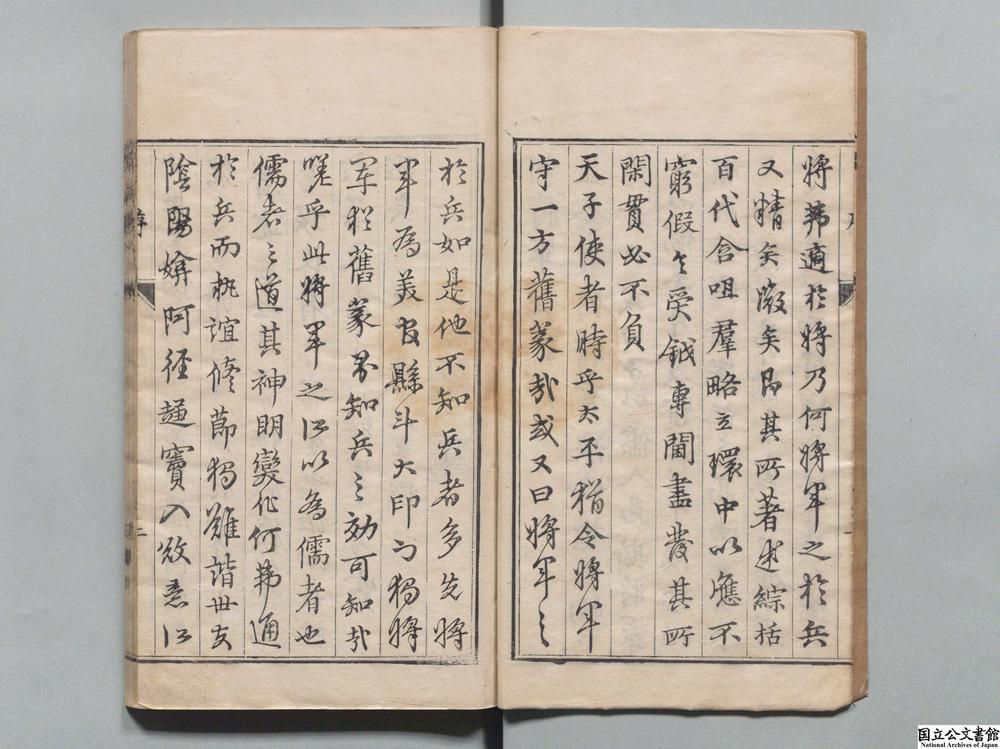 將弗適於將乃何將軍之於兵
又精矣微矣即其所著述綜括
百代含咀羣略立環中以應不
窮假令受鉞專閫盡發其所
閑貫必不負
天子使者時乎太平猶令將軍
守一方舊篆哉或又曰將軍之
序
於兵如是他不知兵者多先將
軍為美官縣斗大印而獨將
軍猶舊篆界知兵之効可知哉
嗟乎此將軍之所以為儒者也
儒者之道其神明變化何弗通
於兵而執誼脩節獨難諧世支
陰陽媕阿徑趨竇入放意江
序
二
国立公文書館
National Archives of Japan